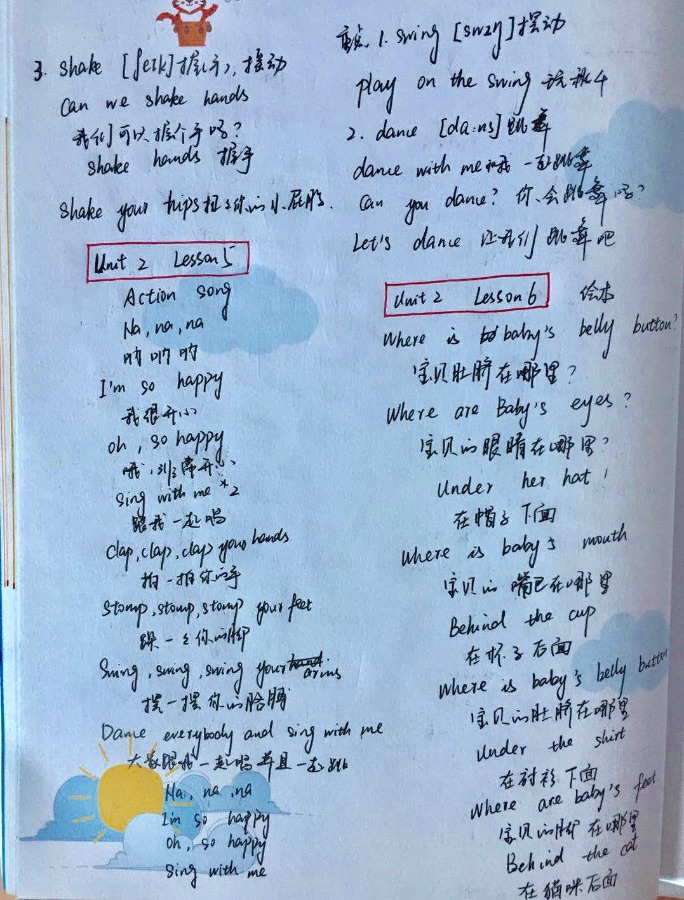 3. shake [ʃeɪk] 握(手), 摇动
Can we shake hands
我们可以握个手吗?
shake hands 握手
shake your hips 扭扭你的小屁股.
Unit 2 Lesson 5
Action song
Na, na, na
呐 呐 呐
I'm so happy
我很开心
oh, so happy
哦, 非常开心
Sing with me *2
跟我一起唱
Clap, clap, clap your hands
拍一拍你的手
Stomp, stomp, stomp your feet
跺一跺你的脚
Swing, swing, swing your arms
摆一摆你的胳膊
Dance everybody and sing with me
大家跟我一起唱并且一起跳
Na, na, na
I'm so happy
oh, so happy
Sing with me
1. Swing [swɪŋ] 摆动
play on the swing 玩秋千
2. dance [da:ns] 跳舞
dance with me 和我一起跳舞
Can you dance? 你会跳舞吗?
Let's dance 让我们跳舞吧
Unit 2 Lesson 6 绘本
Where is baby's belly button?
宝贝肚脐在哪里?
Where are Baby's eyes?
宝贝的眼睛在哪里?
Under her hat!
在帽子下面
Where is baby's mouth
宝贝的嘴巴在哪里
Behind the cup
在杯子后面
Where is baby's belly button
宝贝的肚脐在哪里
Under the shirt
在衬衫下面
Where are baby's feet
宝贝的脚在哪里
Behind the cat
在猫咪后面